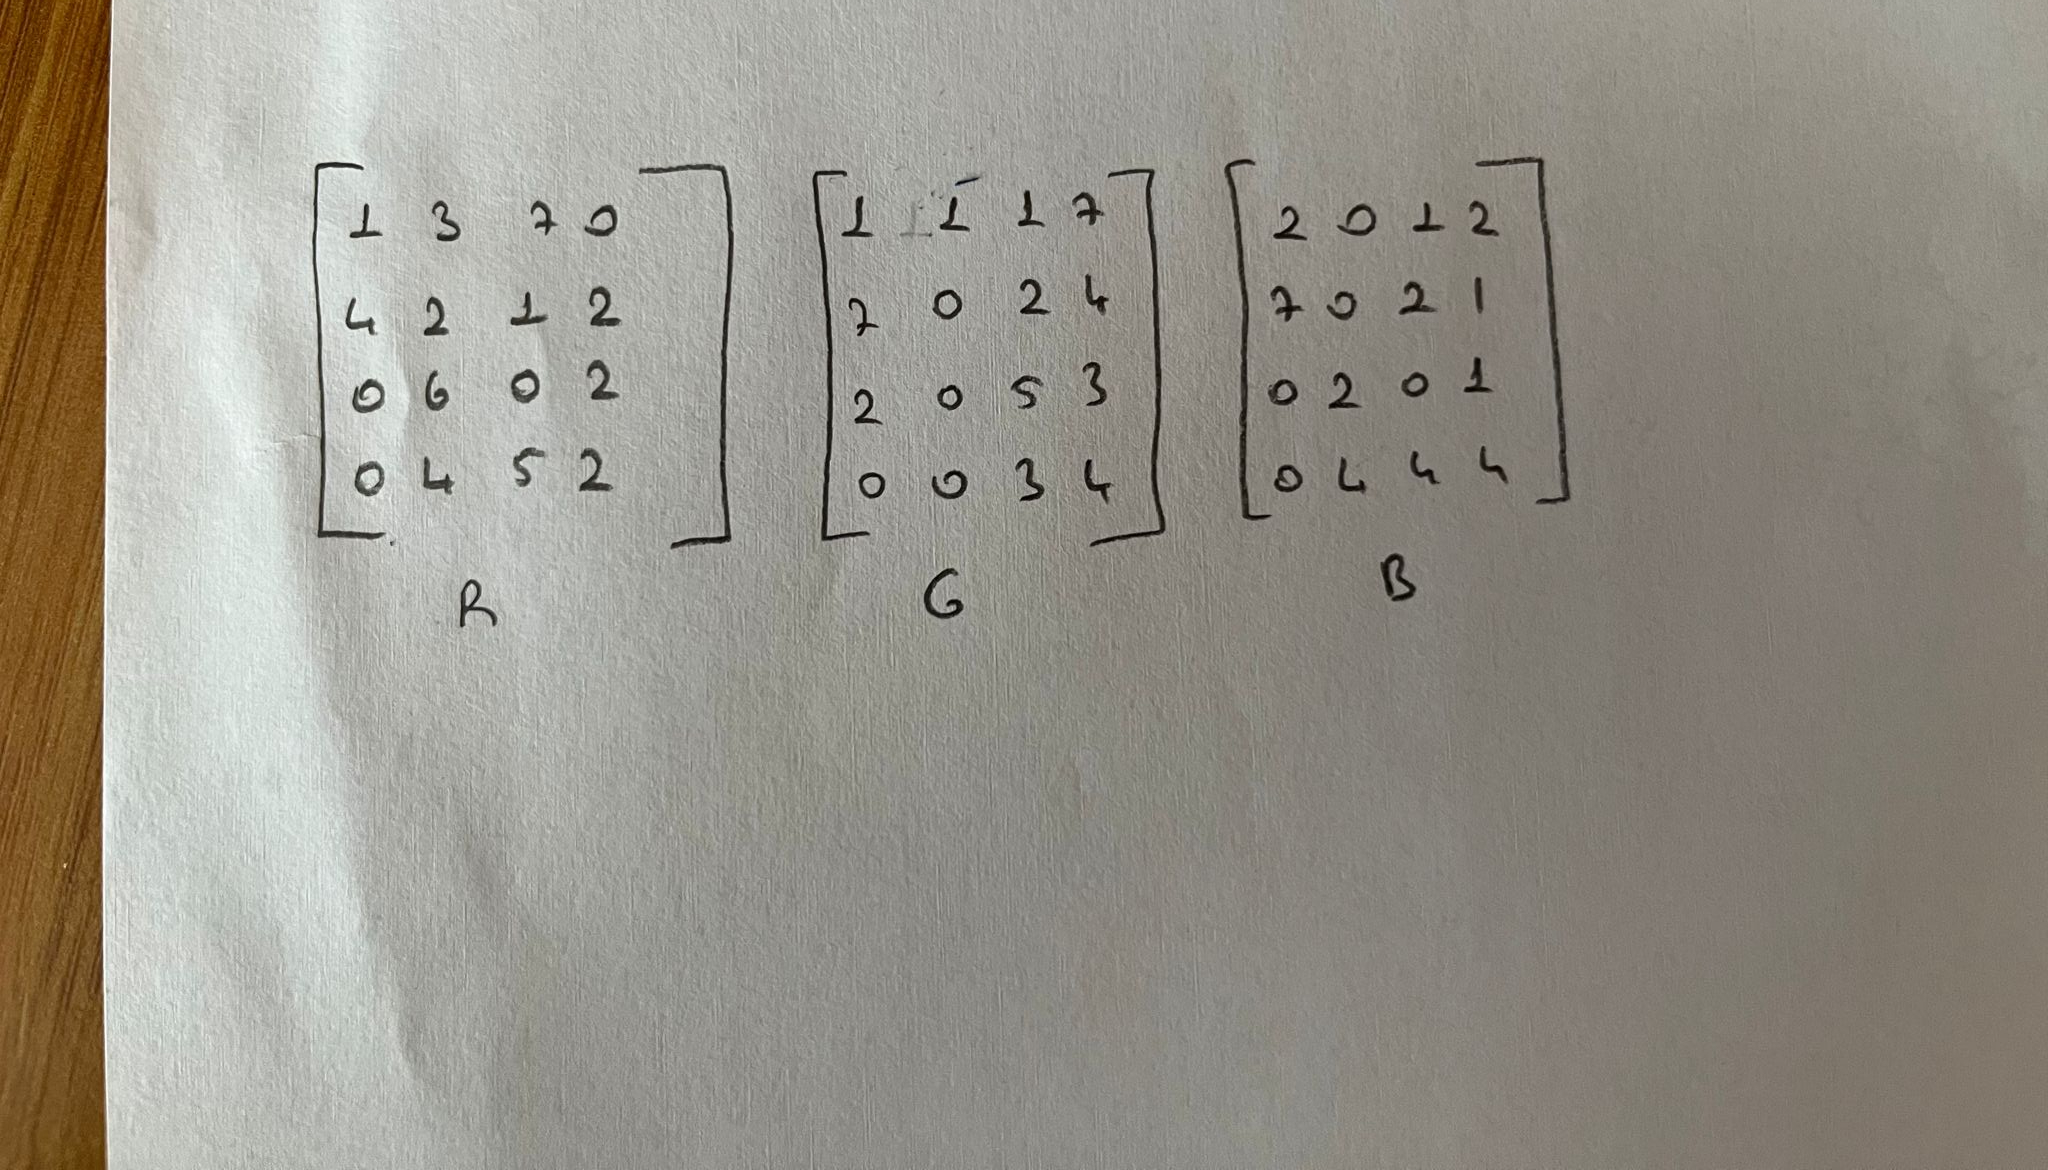 1 3 7 0 1 1 1 7 2 0 1 2
4 2 1 2 7 0 2 4 7 0 2 1
0 6 0 2 2 0 5 3 0 2 0 1
0 4 5 2 0 0 3 4 0 4 4 4
R G B